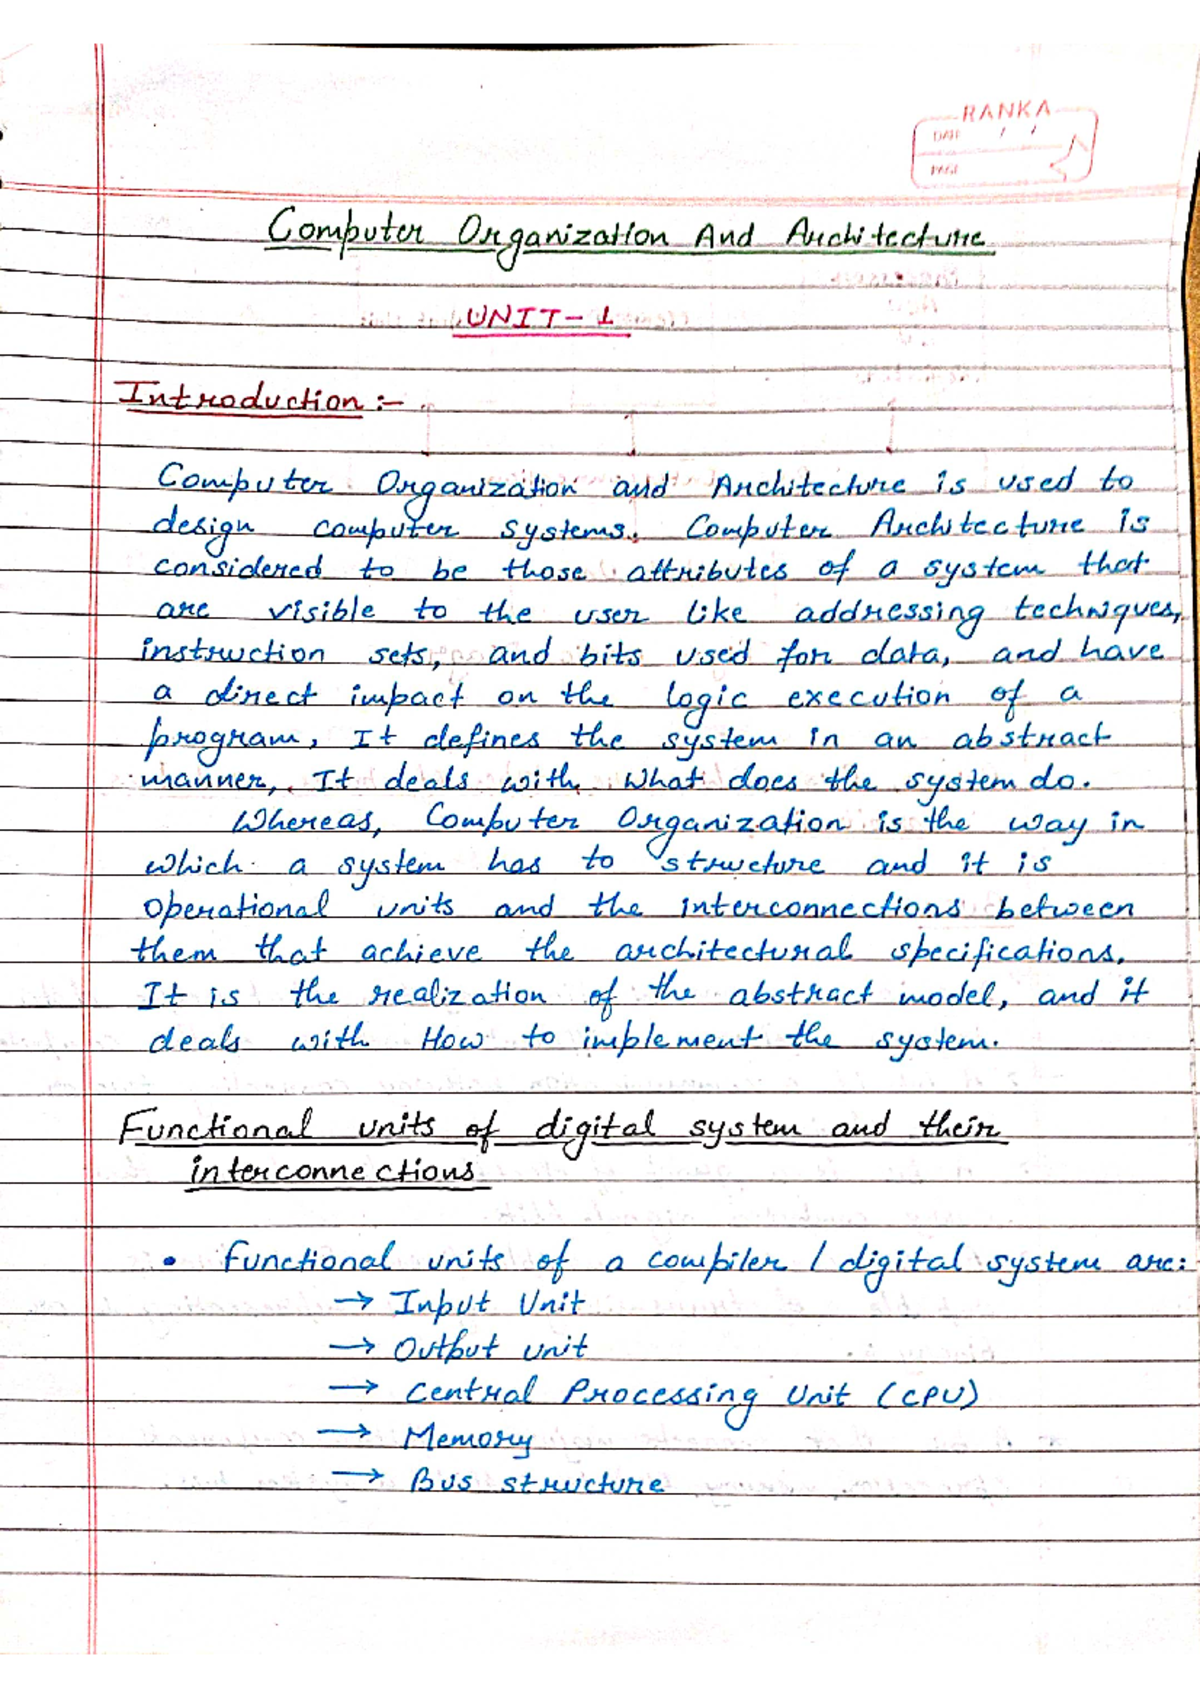 RANKA
DATE / /
PAGE
Computer Organization And Architecture
UNIT-1
Introduction :-
Computer Organization and Architecture is used to
design computer systems. Computer Architecture is
considered to be those attributes of a system that
are visible to the user like addressing techniques,
instruction sets, and bits used for data, and have
a direct impact on the logic execution of a
program, It defines the system in an abstract
manner, It deals with What does the system do.
Whereas, Computer Organization is the way in
which a system has to structure and it is
operational units and the interconnections between
them that achieve the architectural specifications.
It is the realization of the abstract model, and it
deals with How to implement the system.
Functional units of digital system and their
interconnections
• Functional units of a compiler / digital system are:
→ Input Unit
→ Output unit
→ Central Processing Unit (CPU)
→ Memory
→ Bus structure